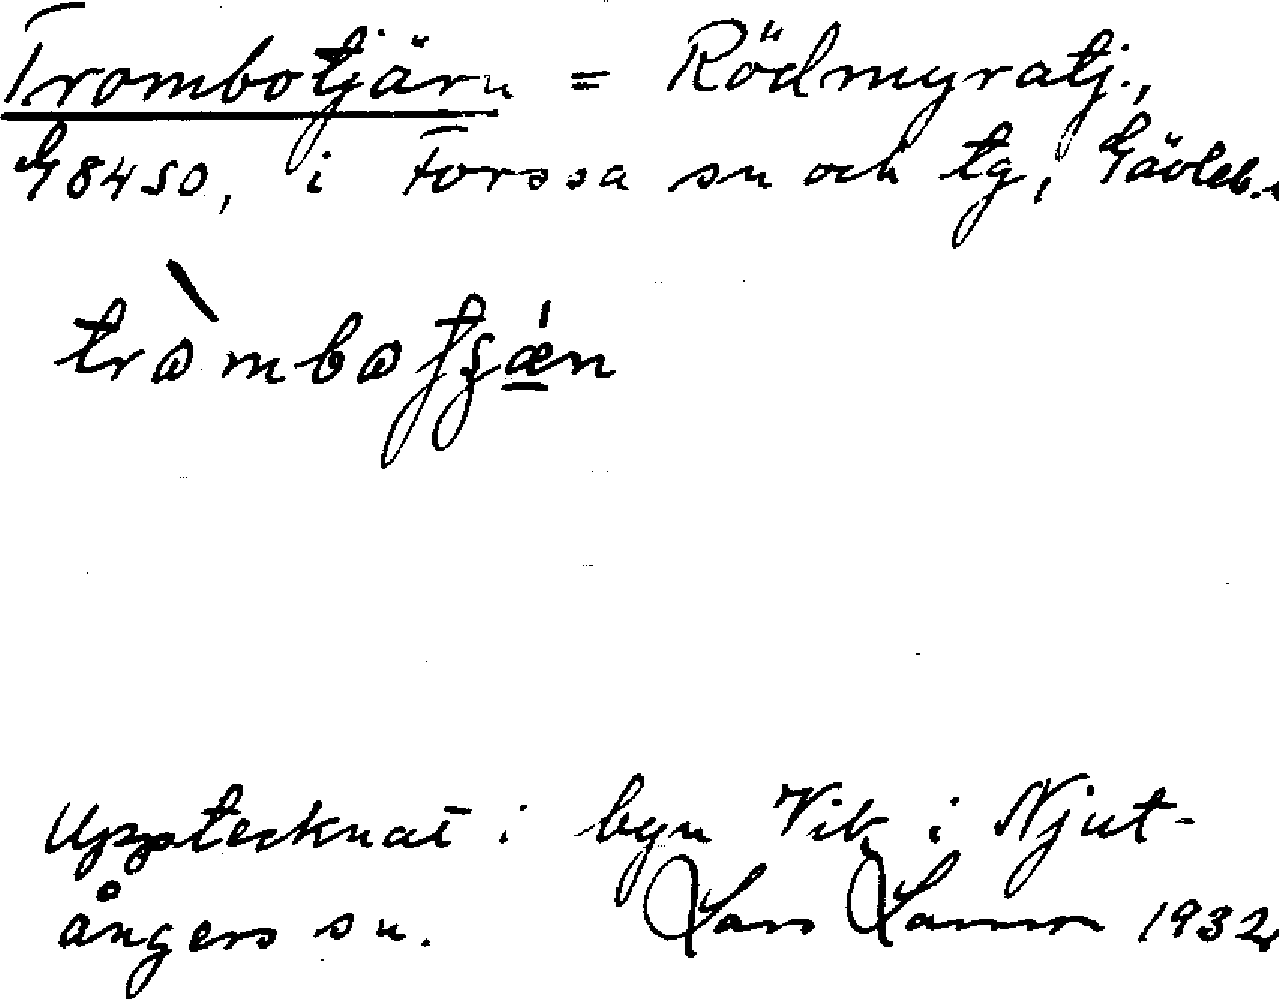 Trombotjärn = Rödmyratj.,
G8450, i Forssa sn och tg, Gävleb.
tròmbotjǽn
Upptecknat i byn Vik i Njut-
ångers sn. Lars Larsson 1932